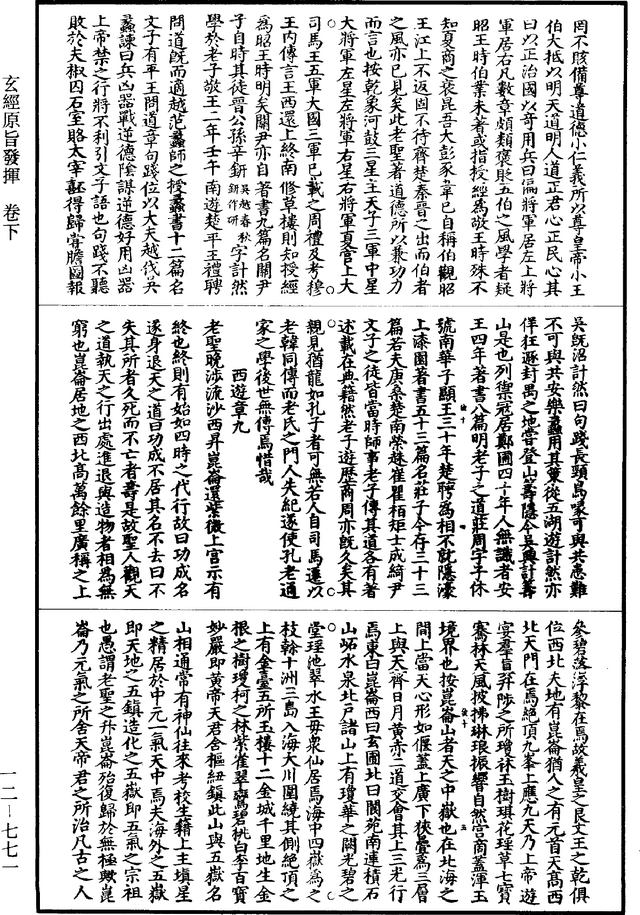 玄經原旨發揮　卷下
罔不賅備尊道德小仁義所以尊皇帝小王
伯大抵以明天道明人道正君心正民心其
曰以正治國以奇用兵曰偏將軍居左上將
軍居右凡數章頗類褒貶五伯之風學者疑
昭王時伯業未著或指授經爲敬王時殊不
知夏商之衰昆吾大彭豕韋已自稱伯觀昭
王江上不返固不待齊楚秦晉之出而伯者
之風亦已見矣此老聖著道德所以兼功力
而言也按乾象河鼓三星主天子三軍中星
大將軍左星左將軍右星右將軍夏官上大
司馬王五軍大國三軍已載之周禮及考穆
王内傳言王西還上終南修草樓則知授經
爲昭王時明矣關尹亦自著書九篇名關尹
子自時其徒晉公孫辛鈃吳越春秋鈃作研字計然
學於老子敬王二年壬午南遊楚平王禮聘
問道旣而適越范蠡師之授蠡書十二篇名
文子有平王問道章句踐位以大夫越伐吳
蠡諫曰兵凶器戰逆德陰謀逆德好用凶器
上帝禁之行將不利引文子語也句踐不聽
敗於夫椒囚石室賂太宰嚭得歸嘗膽圖報
吳旣沼計然曰句踐長頸鳥喙可與共患難
不可與共安樂蠡用其策從五湖遊計然亦
佯狂遯封禺之地嘗登山籌隱今吳興計籌
山是也列禦冦居鄭圃四十年人無識者安
王四年著書八篇明老子之道莊周字子休
號南華子顯王三十年楚聘爲相不就隱濠
上漆園著書五十三篇名莊子今存三十三
篇若夫庚桑楚南榮趎崔瞿栢矩士成綺尹
文子之徒皆當時師事老子傳其道各有著
述載在典籍然老子遊歷商周亦旣久矣其
親見猶龍如孔子者可無若人自司馬遷以
老韓同傳而老氏之門人失紀遂使孔老通
家之學後世無傳焉惜哉
西遊章九
老聖晚渉流沙西昇崑崙還紫微上宫示有
終也終則有始如四時之代行故曰功成名
遂身退天之道曰功成不居其名不去曰不
失其所者久死而不亡者壽是故聖人觀天
之道執天之行出處進退與造物者相爲無
窮也崑崙居地之西北髙萬餘里廣稱之上
參碧落海黎在焉故羲皇之艮文王之乾俱
位西北夫地有崑崙猶人之有元首天髙西
北天門在焉絕頂九峯上應九天乃上帝遊
宴羣陟之所瓊林玉樹琪花瑶草七寶
騫林天風披拂琳琅振響自然宮商蓋渾玉
境界也按崑崙山者天之中嶽也在北海之
間上當天心形如偃蓋上廣下狹疊爲三層
上與天齊日月黄赤二道交會其上三光行
焉東曰崑崙西曰玄圃北曰閬苑南連積石
山岵水泉北戸諸山上有瓊華之闕光碧之
堂瑶池翠水王母衆仙居焉海中四嶽爲之
枝幹十洲三島入海大川圍繞其側絕頂之
上有金臺五所玉樓十二金城千里地生金
根之樹瓊柯之林紫雀翠鸞碧桃白李百寶
妙嚴即黄帝天君含樞紐鎮此山與五嶽名
山相通常有神仙往來考校生籍上主塡星
之精居於中元一氣天中焉夫海外之五嶽
即天地之五鎮造化之五嶽即五氣之宗祖
也愚謂老聖之升崑崙殆復歸於無極歟崑
崙乃元氣之所舍天帝君之所治凡古之人
一二—七七一